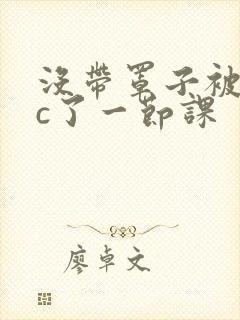 没带罩子被
c了一節課
廖卓文